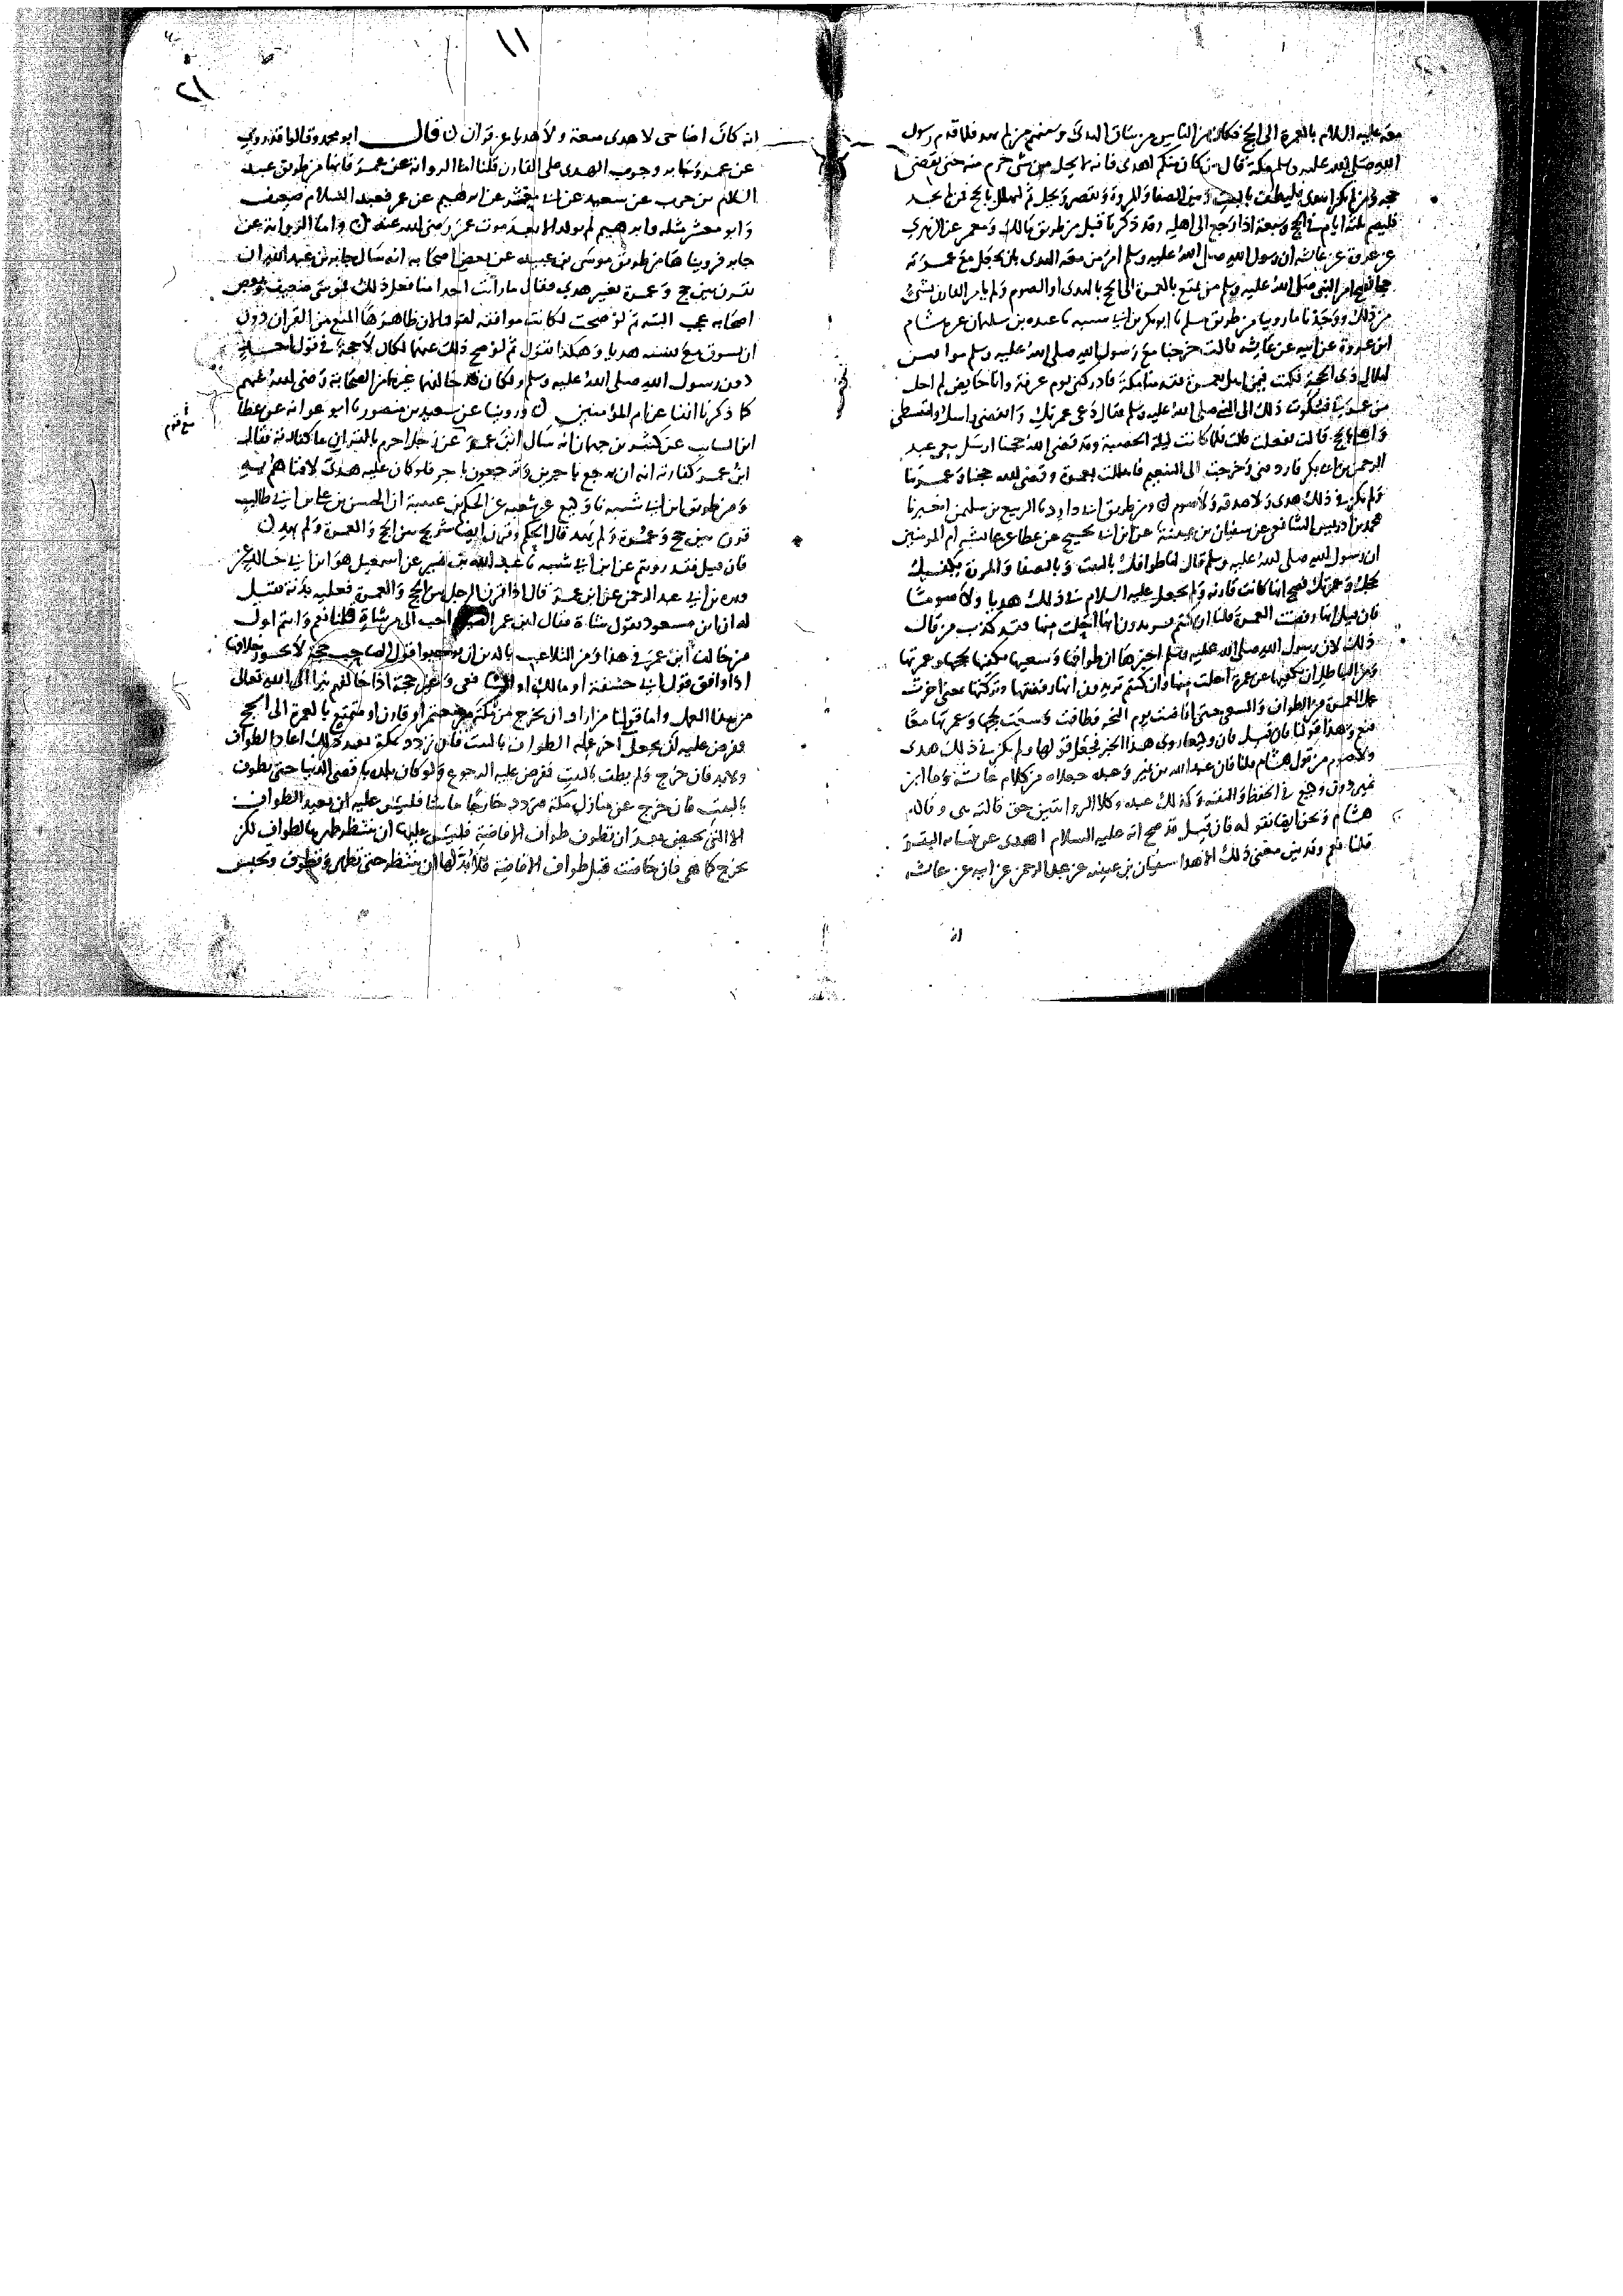 معه عليه السلام بالعمرة الى الحج فكان من الناس من ساق الهدى ومنهم من لم يهد فلما قدم رسول
الله صلى الله عليه وسلم مكة قال من كان منكم اهدى فانه لا يحل من شى حرم منه حتى يقضى
حجه ومن لم يكن اهدى فليطف بالبيت وبين الصفا والمروة وليقصر وليحل ثم ليهلل بالحج فمن لم يجد
فليصم ثلثة ايام فى الحج وسبعة اذا رجع الى اهله وقد ذكرنا قبل من طريق مالك ومعمر عن الزهرى
عن عروة عن عائشة ان رسول الله صلى الله عليه وسلم امر من معه الهدى بان يجعل مع عمرته
حجا فصح امر النبى صلى الله عليه وسلم من تمتع بالعمرة الى الحج بالهدى او الصوم ولم يامر القارن بشئ
من ذلك ووجدنا ما روينا من طريق مسلم نا ابو بكر بن ابى شيبه نا عبده بن سليمان عن هشام
ابن عروة عن ابيه عن عائشه قالت خرجنا مع رسول الله صلى الله عليه وسلم موافين
لهلال ذى الحجة فكنت فيمن اهل بعمرة فقدمنا مكة فادركنى يوم عرفة وانا حايض لم احل
من عمرتى فشكوت ذلك الى النبى صلى الله عليه وسلم فقال دعى عمرتك وانقضى راسك وامتشطى
واهلى بالحج قالت ففعلت فلما كانت ليلة الحصبة وقد قضى الله حجنا ارسل معى عبد
الرحمن بن ابى بكر فاردفنى وخرجت الى التنعيم فاهللت بعمرة وقضى الله حجنا وعمرتنا
ولم يكن فى ذلك هدى ولا صدقة ولا صوم ن ومن طريق ابى داود نا الربيع بن سليمن اخبرنا
محمد بن ادريس الشافعى عن سفيان بن عيينة عن ابن ابى نجيح عن عطا عن عائشه ام المومنين
ان رسول الله صلى الله عليه وسلم قال لها طوافك بالبيت وبالصفا والمروة يكفيك
لحجك وعمرتك فصح انها كانت قارنة ولم يجعل عليه السلام فى ذلك هديا ولا صوما
فان قيل انها رفضت العمرة قلنا ان كنتم تريدون انها احلت منها فقد كذب من قال
ذلك لان رسول الله صلى الله عليه وسلم اخبرها ان طوافها وسعيها يكفيها لحجها وعمرتها
ومن الباطل ان يكفيها عن عمرة احلت منها وان كنتم تريدون انها رفضتها وتركتها بمعنى اخرت
عمل العمرة من الطواف والسعى حتى افاضت يوم النحر فطافت وسعت لحجها وعمرتها معا
فنعم وهذا قولنا فان قيل فان وكيعا روى هذا الخبر فجعل قولها ولم يكن فى ذلك هدى
ولا صوم من قول هشام قلنا فان عبد الله بن نمير وعبده جعلاه من كلام عائشة وما ابن
نمير دون وكيع فى الحفظ والثقة وكذلك عبده وكلا الروايتين حق قالته هى وقاله
هشام ونحن ايضا نقوله فان قيل قد صح انه عليه السلام اهدى عن نسائه البقر
قلنا نعم وقد بين معنى ذلك الاهدا سفيان بن عيينه عن عبد الرحمن عن ابيه عن عائشه
انه
١١
٢١
انه كان اضاحى لا هدى متعة ولا هديا عن قران ن قال ابو محمد وقالوا قد روى
عن عمر وجابر وجوب الهدى على القارن قلنا اما الرواية عن عمر فانها من طريق عبد
السلام بن حرب عن سعيد عن ابى معشر عن ابرهيم عن عمر فعبد السلام ضعيف
وابو معشر مثله وابرهيم لم يولد الا بعد موت عمر رضى الله عنه ن واما الرواية عن
جابر فرويناها من طريق موسى بن عبيده عن بعض اصحابه انه سال جابر بن عبد الله ان
نقرن بين حج وعمرة بغير هدى فقال ما رايت احدا منا فعل ذلك فموسى ضعيف وبعض
اصحابه عجب البته ثم لو صحت لكانت موافقه لقولنا لان ظاهرها المنع من القران دون
ان يسوق مع نفسه هديا وهكذا نقول ثم لو صح ذلك عنهما لكان لا حجة فى قول احد
دون رسول الله صلى الله عليه وسلم ولكان قد خالفهما غيرهما من الصحابة رضى الله عنهم
كما ذكرنا انفا عن ام المؤمنين ن وروينا عن سعيد بن منصور نا ابو عوانه عن عطا
ابن السايب عن كثير بن جمهان انه سال ابن عمر عن رجل احرم بالقران ما كفارته فقال
ابن عمر كفارته انه ان يرجع باجرين وترجعون باجر فلو كان عليه هدى لافتاهم به
ومن طريق ابن ابى شيبه نا وكيع عن شعبه عن الحكم بن عتيبة ان الحسن بن على بن ابى طالب
قرن بين حج وعمرة ولم يهد قال الحكم وقرن ايضا شريح بين الحج والعمرة ولم يهد ن
فان قيل فقد رويتم عن ابن ابى شيبه نا عبد الله بن نمير عن اسمعيل هو ابن ابى خالد عن
وبره بن ابى عبد الرحمن عن ابن عمر قال اذا قرن الرجل بين الحج والعمرة فعليه بدنة فقيل
له ان ابن مسعود يقول شاة فقال ابن عمر الصيام احب الى من شاة قلنا نعم وانتم اول
من خالف ابن عمر فى هذا ومن التلاعب بالدين ان توجبوا قول الصاحب حجة لا يجوز خلافها
اذا وافق قول ابى حنيفة او مالك او الشافعى وغير حجة اذا خالفهم نبرا الى الله تعالى
من هذا العمل واما قولنا من اراد ان يخرج من مكة من معتمر او قارن او متمتع بالعمرة الى الحج
ففرض عليه ان يجعل آخر عمله الطواف بالبيت فان تردد بمكة بعد ذلك اعاد الطواف
ولا بد فان خرج ولم يطف بالبيت ففرض عليه الرجوع ولو كان بلده باقصى الدنيا حتى يطوف
بالبيت فان خرج عن منازل مكة فتردد خارجا ماشيا فليس عليه ان يعيد الطواف
الا التى تحيض بعد ان تطوف طواف الافاضة فليس عليها ان تنتظر طهرها لطواف لكن
تخرج كما هى فان حاضت قبل طواف الافاضة فلا بد لها ان تنتظر حتى تطهر وتطوف وتحبس